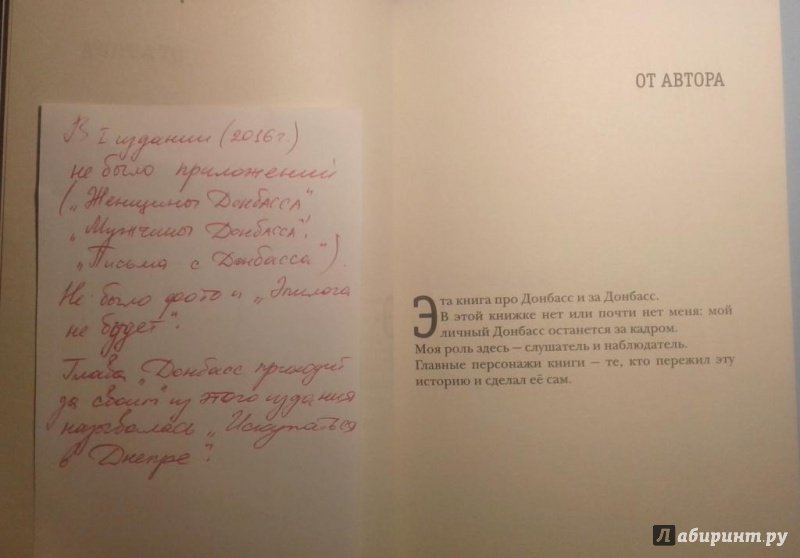 В I издании (2016г.)
не было приложений
(„Женщины Донбасса"
„Мужчины Донбасса",
„Письма с Донбасса").
Не было фото и „Эпилога
не будет".
Глава „Донбасс приходит
за своим" из этого издания
называлась „Искупаться
в Днепре".
ОТ АВТОРА
Эта книга про Донбасс и за Донбасс.
В этой книжке нет или почти нет меня: мой
личный Донбасс останется за кадром.
Моя роль здесь — слушатель и наблюдатель.
Главные персонажи книги — те, кто пережил эту
историю и сделал её сам.
Лабиринт.ру